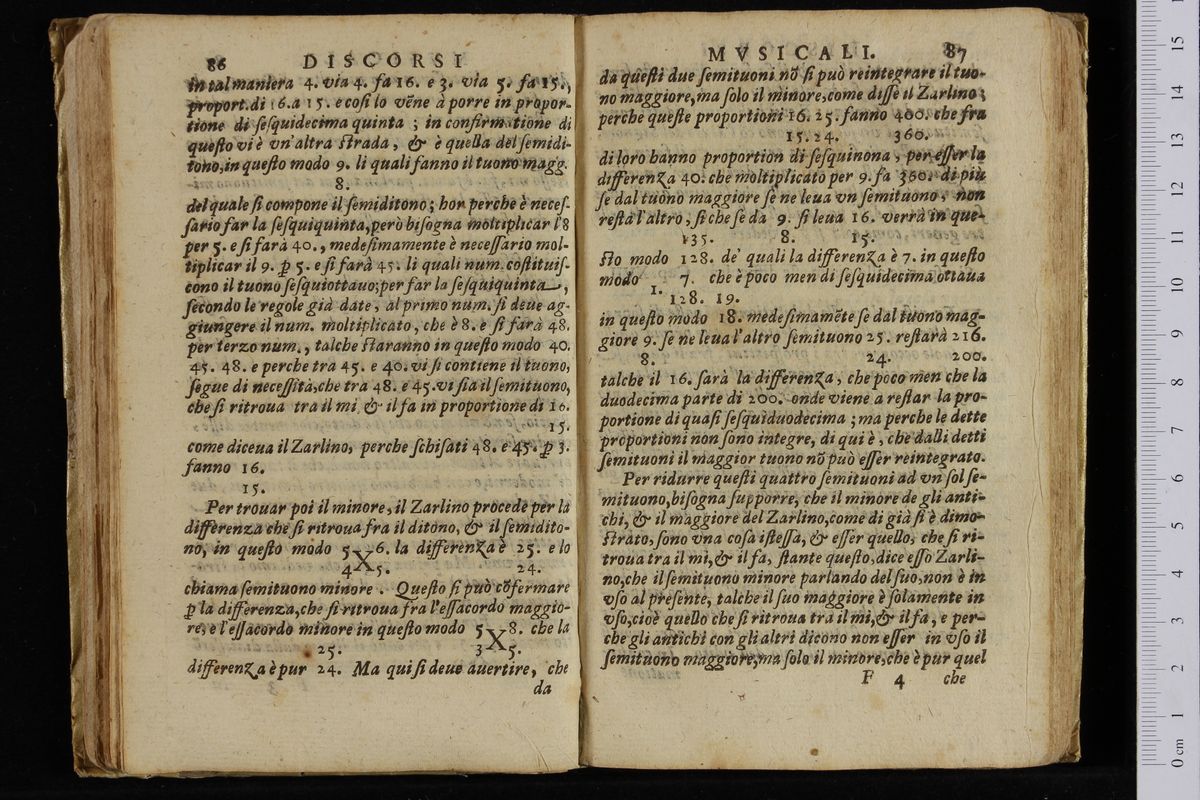 86 DISCORSI
in tal maniera 4. via 4. fa 16. e 3. via 5. fa 15.,
proport. di 16. a 15. e così lo vẽne à porre in propor-
tione di ſeſquidecima quinta ; in confirmatione di
queſto vi è vn'altra ſtrada, & è quella del ſemidi-
tono, in queſto modo 9. li quali fanno il tuono magg.
8.
del quale ſi compone il ſemiditono; hor perche è neceſ-
ſario far la ſeſquiquinta, però biſogna moltiplicar l'8
per 5. e ſi farà 40., medeſimamente è neceſſario mol-
tiplicar il 9. ꝑ 5. e ſi farà 45. li quali num. coſtituiſ-
cono il tuono ſeſquiottauo; per far la ſeſquiquinta,
ſecondo le regole già date, al primo num. ſi deue ag-
giungere il num. moltiplicato, che è 8. e ſi farà 48.
per terzo num., talche ſtaranno in queſto modo 40.
45. 48. e perche tra 45. e 40. vi ſi contiene il tuono,
ſegue di neceſſità, che tra 48. e 45. vi ſia il ſemituono,
che ſi ritroua tra il mi & il fa in proportione di 16.
15.
come diceua il Zarlino, perche ſchiſati 48. e 45. ꝑ 3.
fanno 16.
15.
Per trouar poi il minore, il Zarlino procede per la
differenza che ſi ritroua fra il ditono, & il ſemidito-
no, in queſto modo 5 X 6. la differenza è 25. e lo
4 5. 24.
chiama ſemituono minore. Queſto ſi può cõfermare
ꝑ la differenza, che ſi ritroua fra l'eſſacordo maggio-
re, e l'eſſacordo minore in queſto modo 5 X 8. che la
25. 3 5.
differenza è pur 24. Ma qui ſi deue auertire, che
da
MVSICALI. 87
da queſti due ſemituoni nõ ſi può reintegrare il tuo-
no maggiore, ma ſolo il minore, come diſſe il Zarlino;
perche queſte proportioni 16. 25. fanno 400. che fra
15. 24. 360.
di loro hanno proportion di ſeſquinona, per eſſer la
differenza 40. che moltiplicato per 9. fa 360. di più
ſe dal tuono maggiore ſe ne leua vn ſemituono, non
reſta l'altro, ſi che ſe da 9. ſi leua 16. verrà in que-
135. 8. 15.
ſto modo 128. de' quali la differenza è 7. in queſto
modo 7. che è poco men di ſeſquidecima ottaua
1. 128. 19.
in queſto modo 18. medeſimamẽte ſe dal tuono mag-
giore 9. ſe ne leua l'altro ſemituono 25. reſtarà 216.
8. 24. 200.
talche il 16. ſarà la differenza, che poco men che la
duodecima parte di 200. onde viene a reſtar la pro-
portione di quaſi ſeſquiduodecima ; ma perche le dette
proportioni non ſono integre, di qui è, che dalli detti
ſemituoni il maggior tuono nõ può eſſer reintegrato.
Per ridurre queſti quattro ſemituoni ad vn ſol ſe-
mituono, biſogna ſupporre, che il minore de gli anti-
chi, & il maggiore del Zarlino, come di già ſi è dimo-
ſtrato, ſono vna coſa iſteſſa, & eſſer quello, che ſi ri-
troua tra il mi, & il fa, ſtante queſto, dice eſſo Zarli-
no, che il ſemituono minore parlando del ſuo, non è in
vſo al preſente, talche il ſuo maggiore è ſolamente in
vſo, cioè quello che ſi ritroua tra il mi, & il fa, e per-
che gli antichi con gli altri dicono non eſſer in vſo il
ſemituono maggiore, ma ſolo il minore, che è pur quel
F 4 che
0 cm 1 2 3 4 5 6 7 8 9 10 11 12 13 14 15